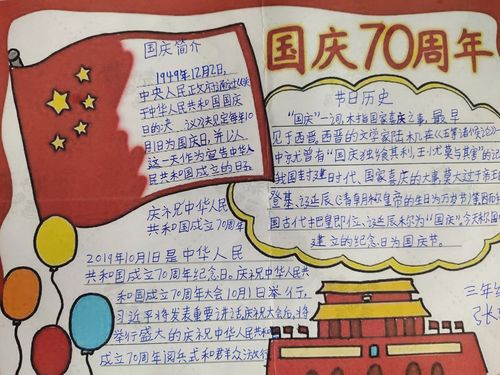 国庆70周年
国庆简介
1949年12月2日,
中央人民政府通过《关
于中华人民共和国国庆
日的决议》决定每年10
月1日为国庆日,并以
这一天作为宣告中华人
民共和国成立的日子。
节日历史
"国庆"一词,本指国家喜庆之事,最早
见于西晋。西晋的文学家陆机在《五等诸侯论》
中就曾有"国庆独飨其利,主忧莫与其害"的记
我国封建时代、国家喜庆的大事,莫大过于帝王的
登基、诞辰(清朝
国古代把皇帝即位、诞辰称为"国庆"。今天称国
建立的纪念日为国庆节。
庆祝中华人民
共和国成立70周年
2019年10月1日是中华人民
共和国成立70周年纪念日。庆祝中华人民共
和国成立70周年大会10月1日举行,
习近平将发表重要讲话,庆祝大会后,将
举行盛大的庆祝中华人民共和国
成立70周年阅兵式和群众游行
三年
张